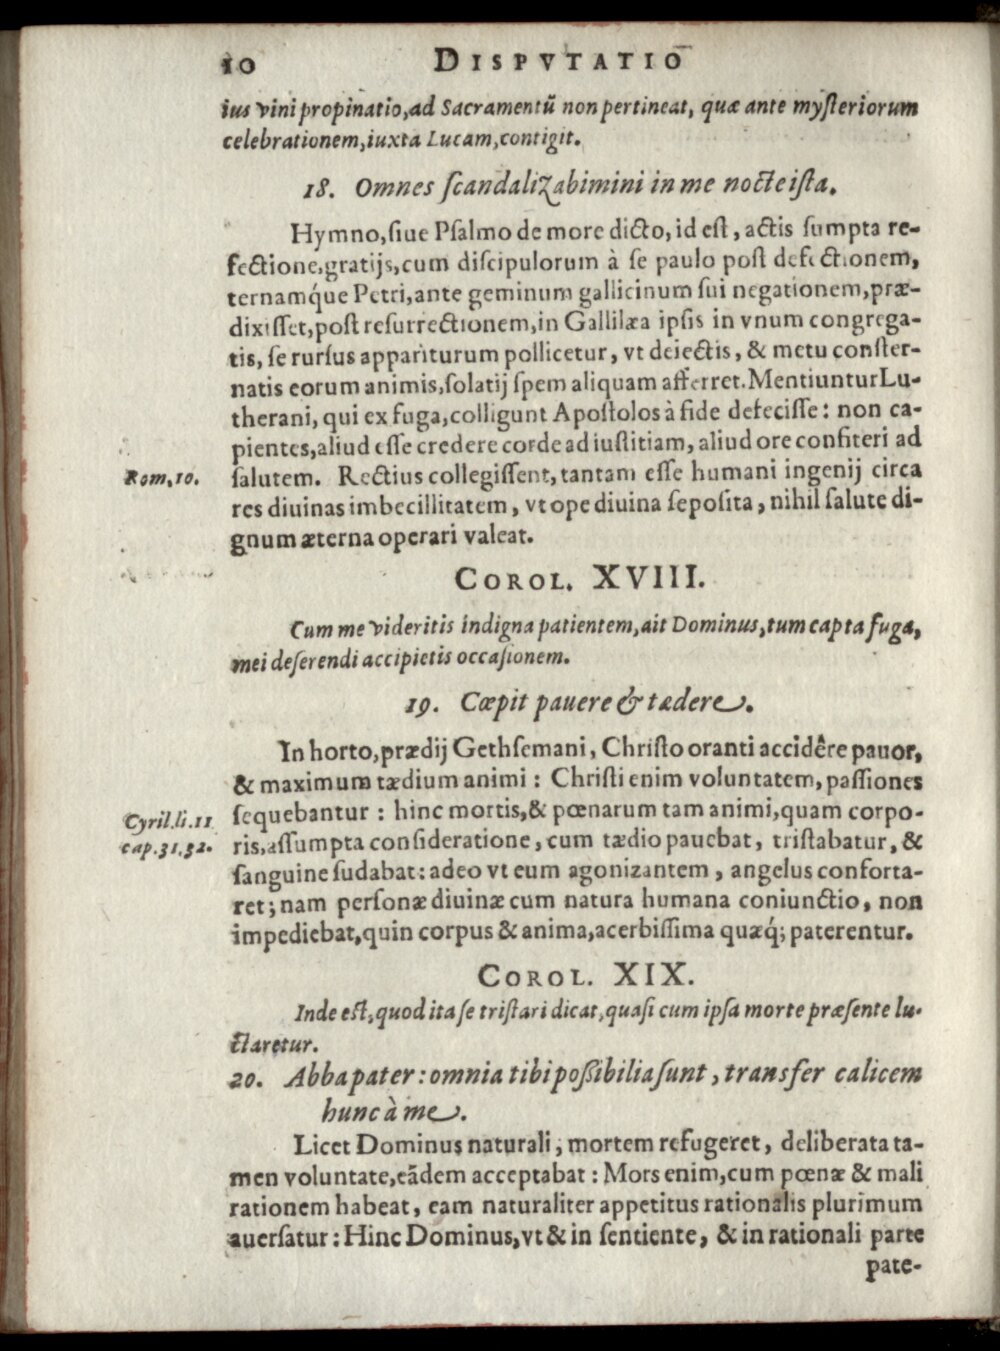 10 DISPVTATIO
ius vini propinatio, ad Sacramentū non pertineat, quæ ante mysteriorum
celebrationem, iuxta Lucam, contigit.
18. Omnes scandalizabimini in me nocte ista.
Hymno, siue Psalmo de more dicto, id est, actis sumpta re-
fectione, gratijs, cum discipulorum à se paulo post defectionem,
ternamq́ue Petri, ante geminum gallicinum sui negationem, præ-
dixisset, post resurrectionem, in Gallilæa ipsis in vnum congrega-
tis, se rursus appariturum pollicetur, vt deiectis, & metu conster-
natis eorum animis, solatij spem aliquam afferret. Mentiuntur Lu-
therani, qui ex fuga, colligunt Apostolos à fide defecisse: non ca-
pientes, aliud esse credere corde ad iustitiam, aliud ore confiteri ad
Rom. 10. salutem. Rectius collegissent, tantam esse humani ingenij circa
res diuinas imbecillitatem, vt ope diuina seposita, nihil salute di-
gnum æterna operari valeat.
COROL. XVIII.
Cum me videritis indigna patientem, ait Dominus, tum capta fuga,
mei deserendi accipietis occasionem.
19. Cœpit pauere & tædere.
In horto, prædij Gethsemani, Christo oranti accidêre pauor,
& maximum tædium animi: Christi enim voluntatem, passiones
Cyril. li. 11 sequebantur: hinc mortis, & pœnarum tam animi, quam corpo-
cap. 31. 32. ris, assumpta consideratione, cum tædio pauebat, tristabatur, &
sanguine sudabat: adeo vt eum agonizantem, angelus conforta-
ret; nam personæ diuinæ cum natura humana coniunctio, non
impediebat, quin corpus & anima, acerbissima quæq́; paterentur.
COROL. XIX.
Inde est, quod ita se tristari dicat, quasi cum ipsa morte præsente lu-
ctaretur.
20. Abba pater: omnia tibi possibilia sunt, transfer calicem
hunc à me.
Licet Dominus naturali, mortem refugeret, deliberata ta-
men voluntate, eādem acceptabat: Mors enim, cum pœnæ & mali
rationem habeat, eam naturaliter appetitus rationalis plurimum
auersatur: Hinc Dominus, vt & in sentiente, & in rationali parte
pate-